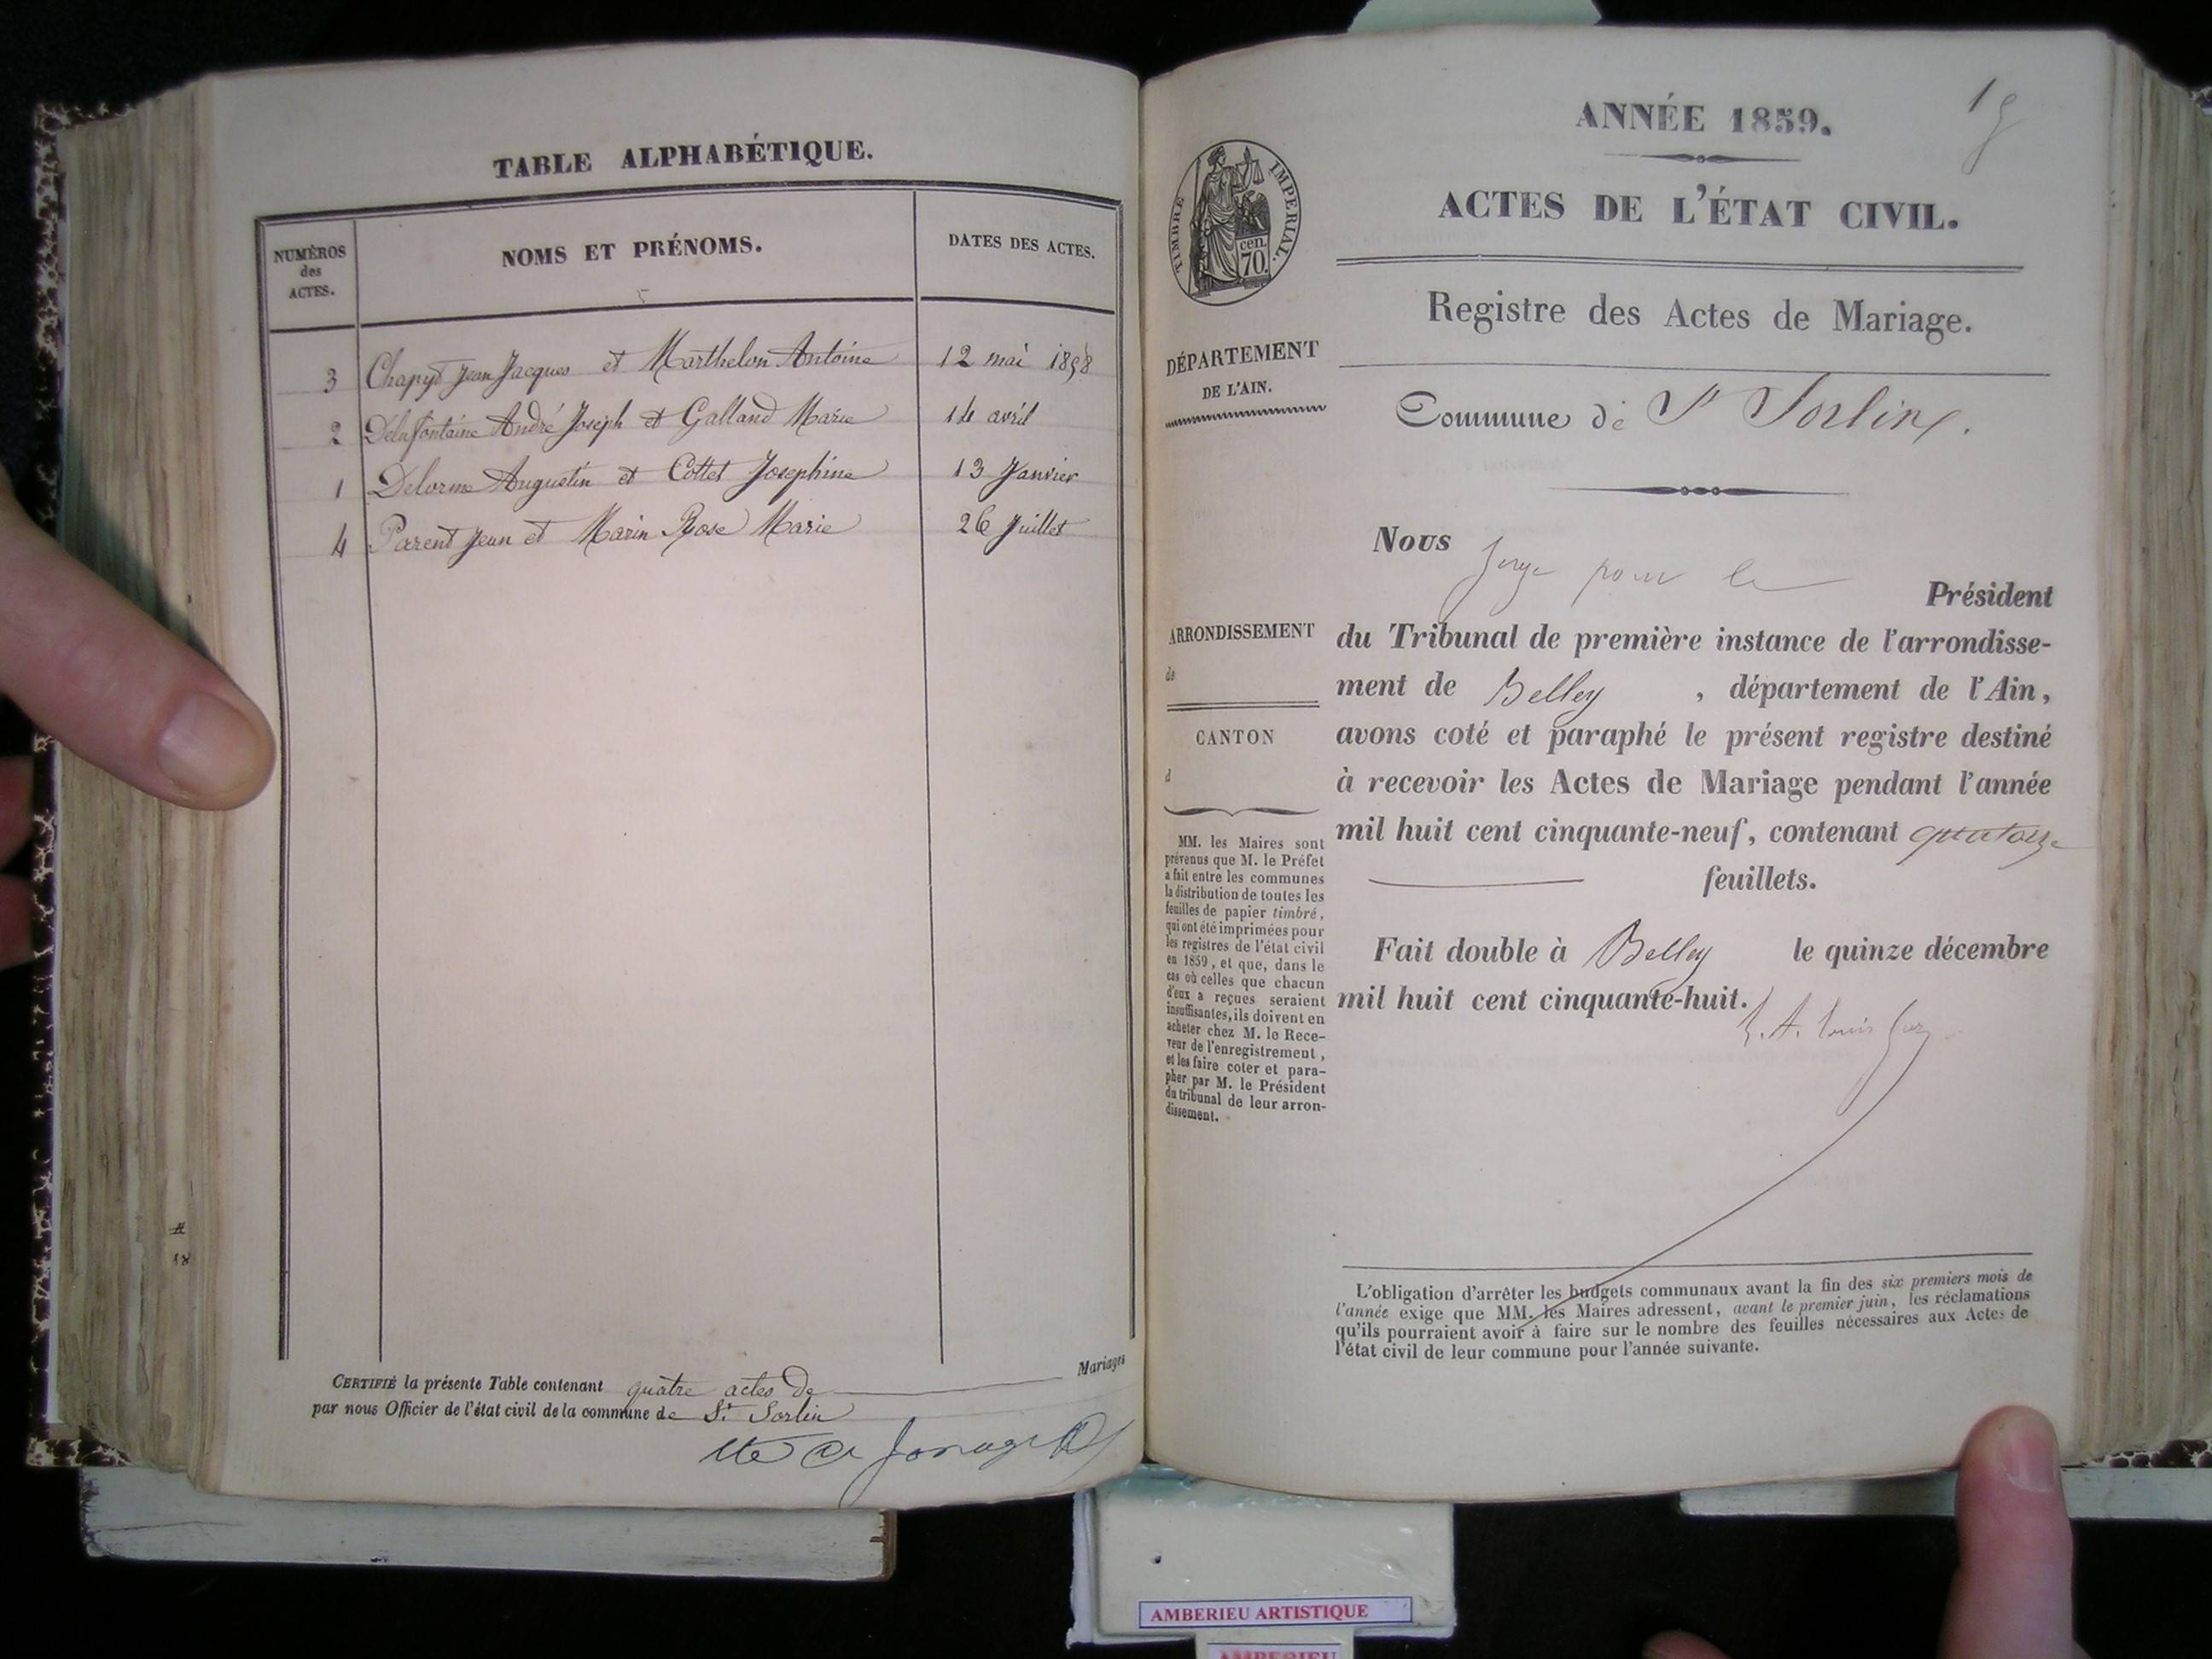 TABLE ALPHABÉTIQUE.
NUMÉROS des ACTES.
NOMS ET PRÉNOMS.
DATES DES ACTES.
3 Chapyt Jean Jacques et Marthelon Antoine 12 mai 1858
2 Délafontaine André Joseph et Galland Marie 14 avril
1 Delorme Augustin et Cottet Josephine 13 Janvier
4 Parent Jean et Marin Rose Marie 26 Juillet
CERTIFIÉ la présente Table contenant quatre actes de Mariages
par nous Officier de l'état civil de la commune de St. Sorlin
ANNÉE 1859.
ACTES DE L'ÉTAT CIVIL.
TIMBRE IMPERIAL.
cen.
70.
Registre des Actes de Mariage.
DÉPARTEMENT
DE L'AIN.
Commune de St Sorlin.
Nous Juge pour le
Président
ARRONDISSEMENT
de
CANTON
d
du Tribunal de première instance de l'arrondisse-
ment de Belley , département de l'Ain,
avons coté et paraphé le présent registre destiné
à recevoir les Actes de Mariage pendant l'année
mil huit cent cinquante-neuf, contenant quatorze
feuillets.
Fait double à Belley le quinze décembre
mil huit cent cinquante-huit.
MM. les Maires sont
prévenus que M. le Préfet
a fait entre les communes
la distribution de toutes les
feuilles de papier timbré,
qui ont été imprimées pour
les registres de l'état civil
en 1859, et que, dans le
cas où celles que chacun
d'eux a reçues seraient
insuffisantes, ils doivent en
acheter chez M. le Rece-
veur de l'enregistrement,
et les faire coter et para-
pher par M. le Président
du tribunal de leur arron-
dissement.
L'obligation d'arrêter les budgets communaux avant la fin des six premiers mois de
l'année exige que MM. les Maires adressent, avant le premier juin, les réclamations
qu'ils pourraient avoir à faire sur le nombre des feuilles nécessaires aux Actes de
l'état civil de leur commune pour l'année suivante.
AMBERIEU ARTISTIQUE
AMBERIEU